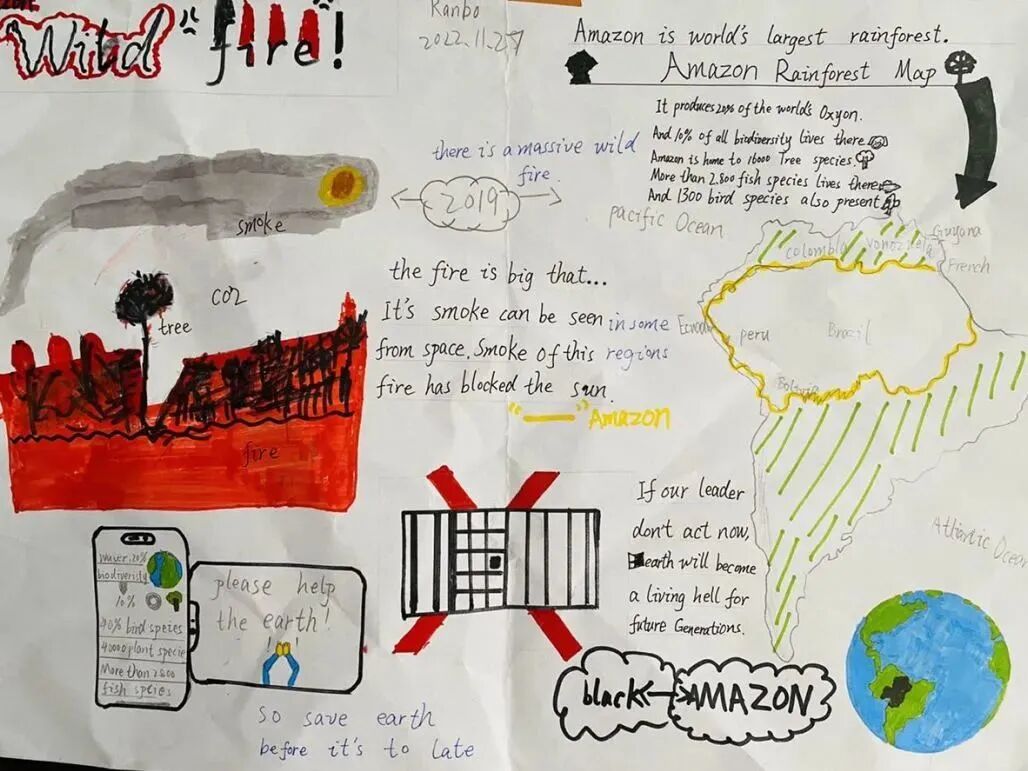 Wild fire!
Ranbo
2022.11.27
Amazon is world's largest rainforest.
Amazon Rainforest Map
It produces 20% of the world's Oxyon.
And 10% of all biodiversity lives there
Amazon is home to 16000 Tree species
More than 2.800 fish species lives there
And 1300 bird species also present
there is a massive wild
fire.
2019
smoke
CO2
tree
fire
the fire is big that...
It's smoke can be seen in some
from space. Smoke of this regions
fire has blocked the sun.
"—" Amazon
pacific Ocean
colombia
Vonozuela
Guyana
French
Ecuador
peru
Brazil
Bolivia
Atlantic Ocean
If our leader
don't act now,
earth will become
a living hell for
future Generations.
water.20%
biodiveristy
10%
bird species
40000 plant specie
More than 2800
fish species
please help
the earth!
black
AMAZON
So save earth
before it's to late